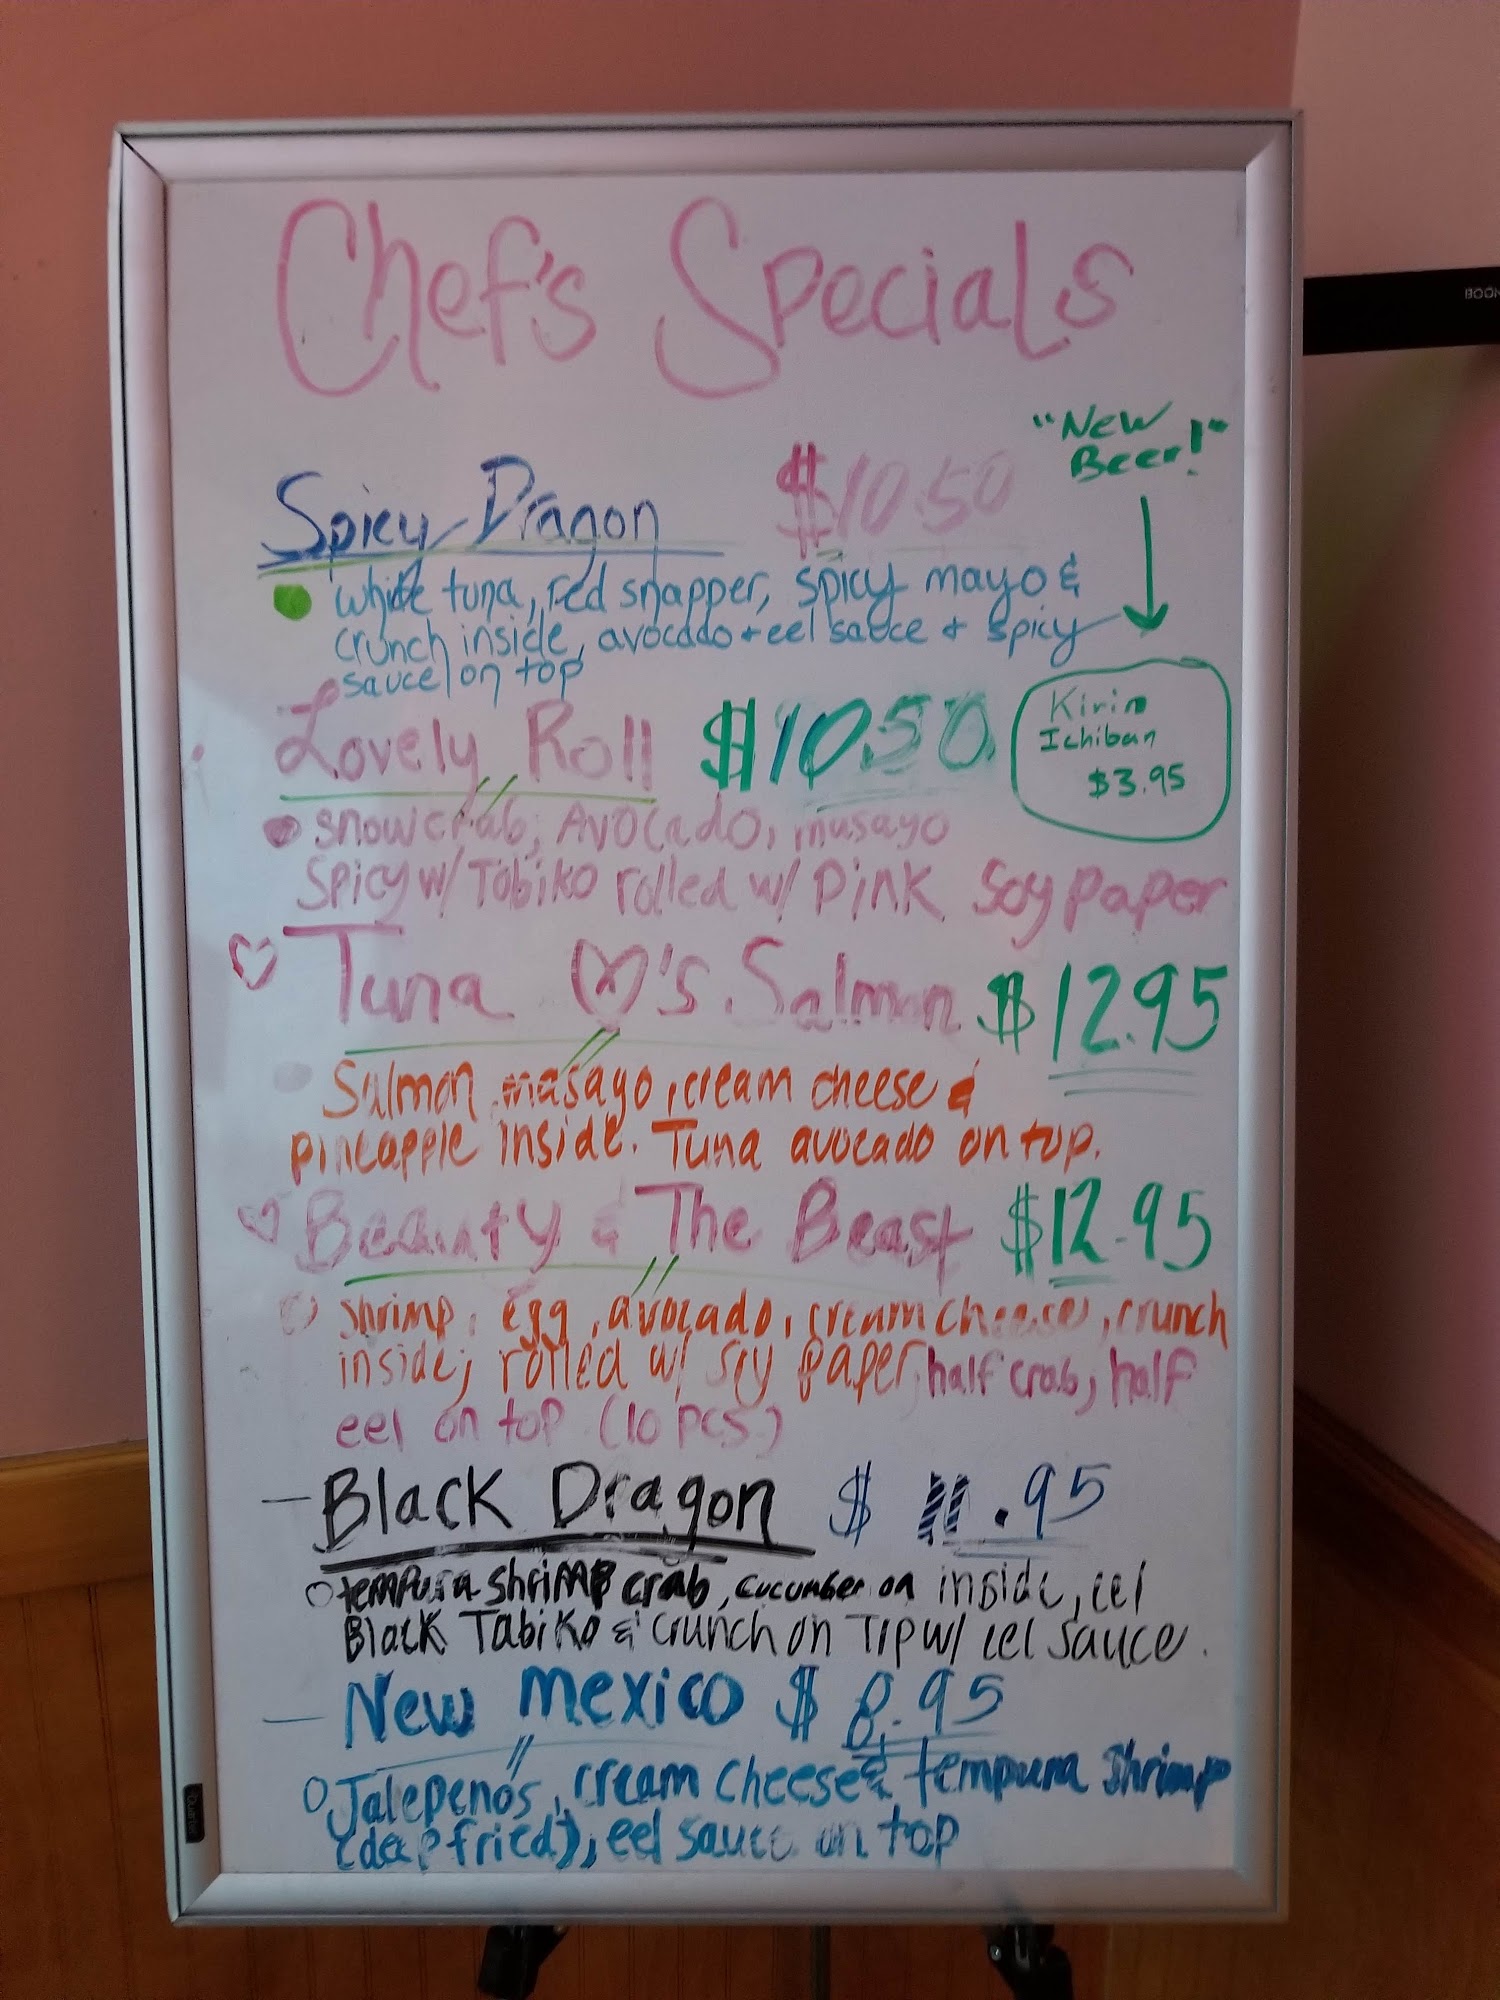 Chef's Specials
"New
Beer!"
Spicy Dragon $10.50
white tuna, red snapper, spicy mayo &
crunch inside, avocado + eel sauce + spicy
sauce on top
Kirin
Ichiban
$3.95
Lovely Roll $10.50
snowcrab, Avocado, musayo
Spicy w/ Tobiko rolled w/ Pink Soy paper
Tuna ♡'s Salmon $12.95
Salmon, masago, cream cheese &
pineapple inside. Tuna avocado on top.
Beauty & The Beast $12.95
shrimp, egg, avocado, cream cheese, crunch
inside, rolled w/ soy paper, half crab, half
eel on top (10 pcs)
- Black Dragon $11.95
tempura shrimp crab, cucumber on inside, eel
Black Tabiko & crunch on Top w/ eel sauce.
- New Mexico $8.95
Jalepenos, cream cheese & tempura shrimp
(deep fried), eel sauce on top
Quartet